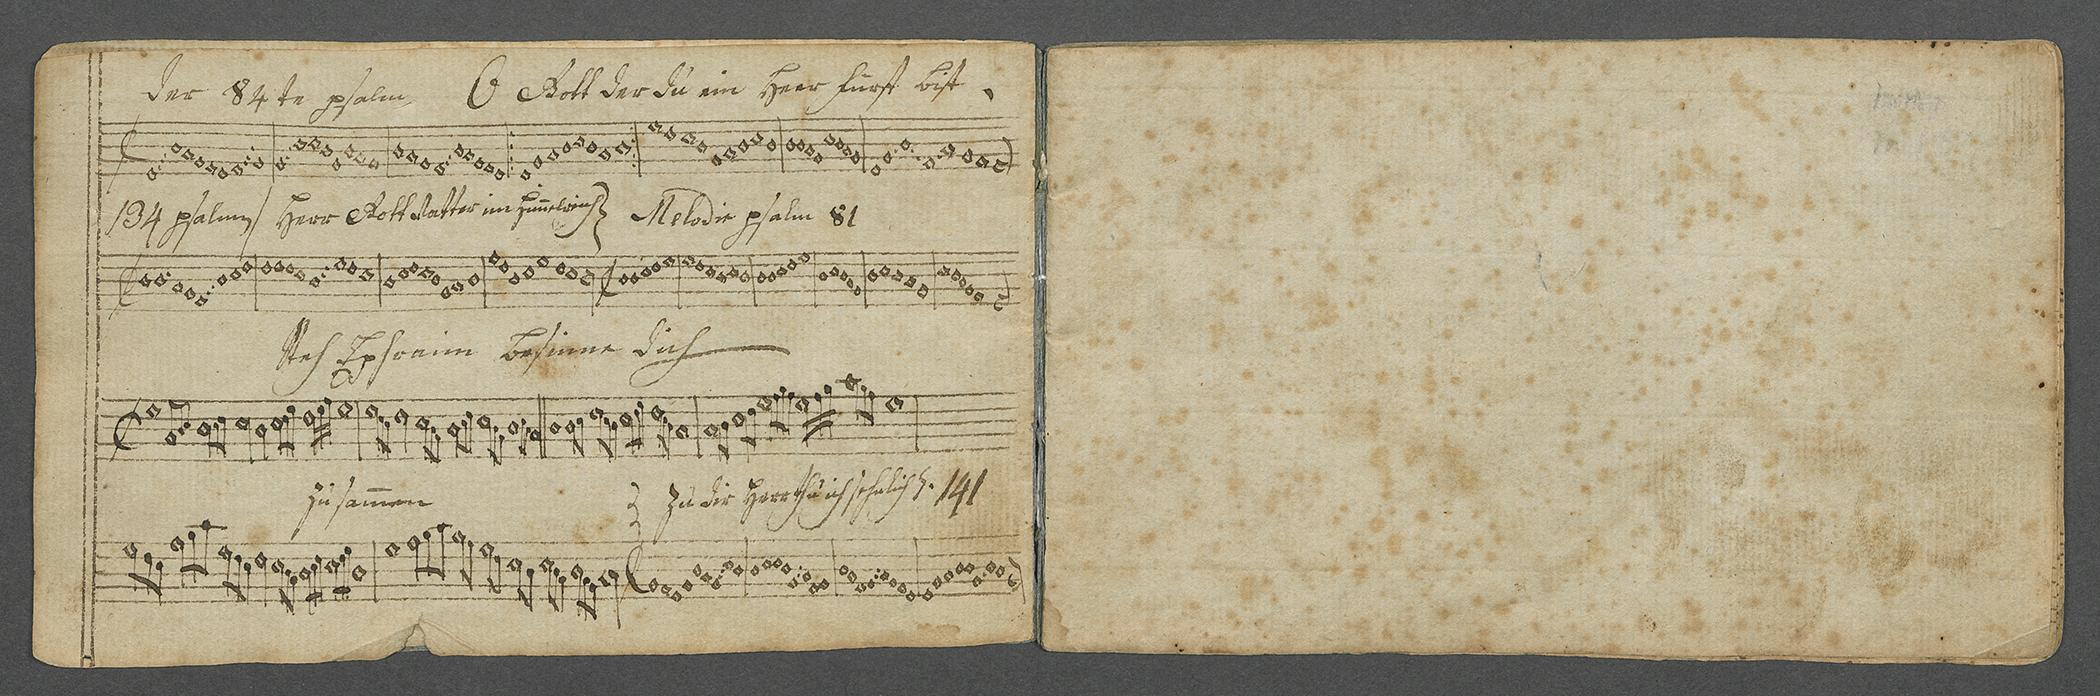 der 84 te psalm O Gott der dü ein Heer fürst bist
134 psalm / Herr Gott Vatter im Him̅elreich Melodie psalm 81
Steh Ephraim besinne dich
Züsam̅en
Zü dir Herr thü ich sehnlich 141